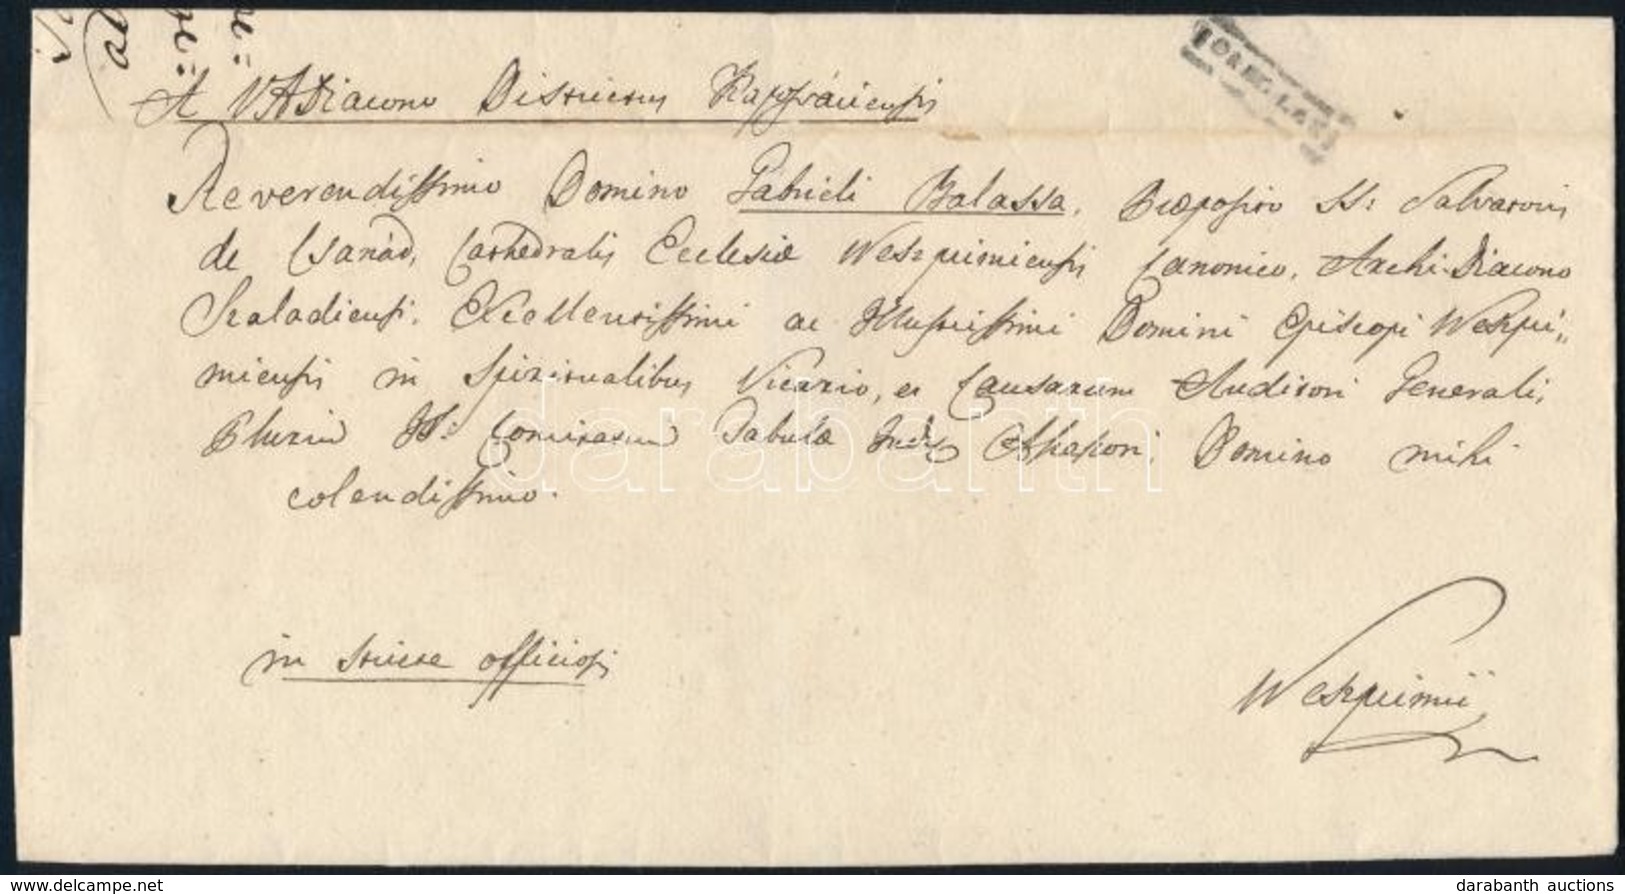 A VADiacono Districtus Kaposváriensis
Reverendissimo Domino Gabrieli Balassa, Præposito SS: Salvatoris
de Csanád, Cathedralis Ecclesiæ Weszprimiensis Canonico, Archi-Diacono
Szaladiensi, Excellentissimi ac Illustrissimi Domini Episcopi Weszpri„
miensis in Spiritualibus Vicario, et Causarum Auditori Generali,
Plurium Comitatuum Tabulæ Assessori, Domino mihi
colendissimo.
in sincere officiosis
Weszprimii
darabanth
darabanth auctions